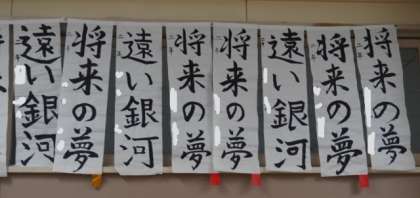 将来の夢
将来の夢
遠い銀河
将来の夢
将来の夢
遠い銀河
将来の夢
遠い銀河